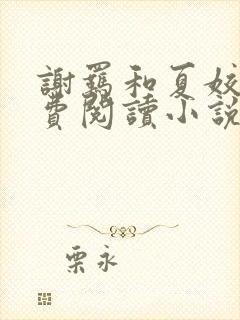 謝鶱和夏姣
費閱讀小說
栗永